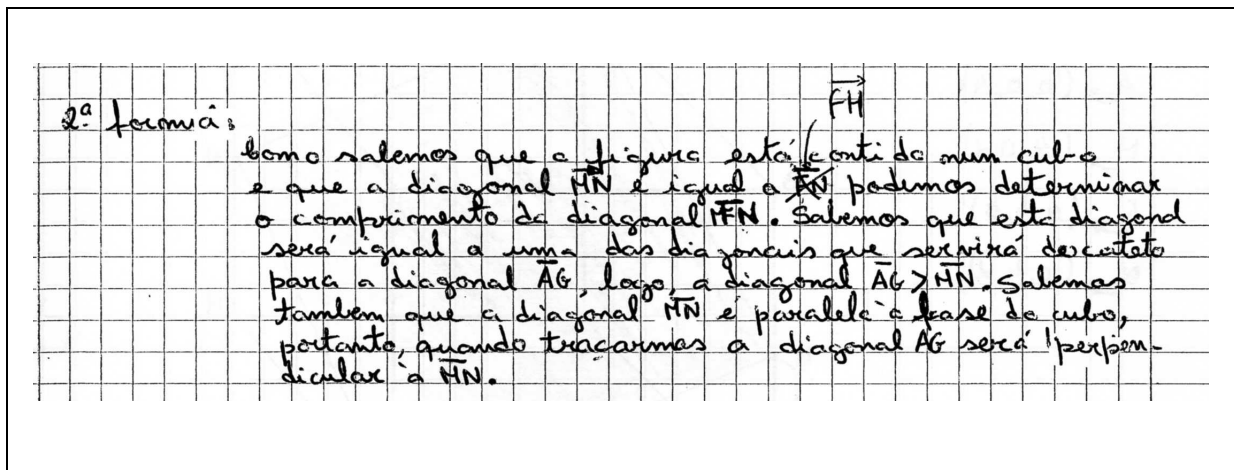 FH
2ª forma:
Como sabemos que a figura está contida num cubo
e que a diagonal MN é igual a podemos determinar
o comprimento da diagonal FN. Sabemos que esta diagonal
será igual a uma das diagonais que servirá de cateto
para a diagonal AG, logo, a diagonal AG > MN. Sabemos
também que a diagonal MN é paralela à base do cubo,
portanto, quando traçarmos a diagonal AG será perpen-
dicular à MN.